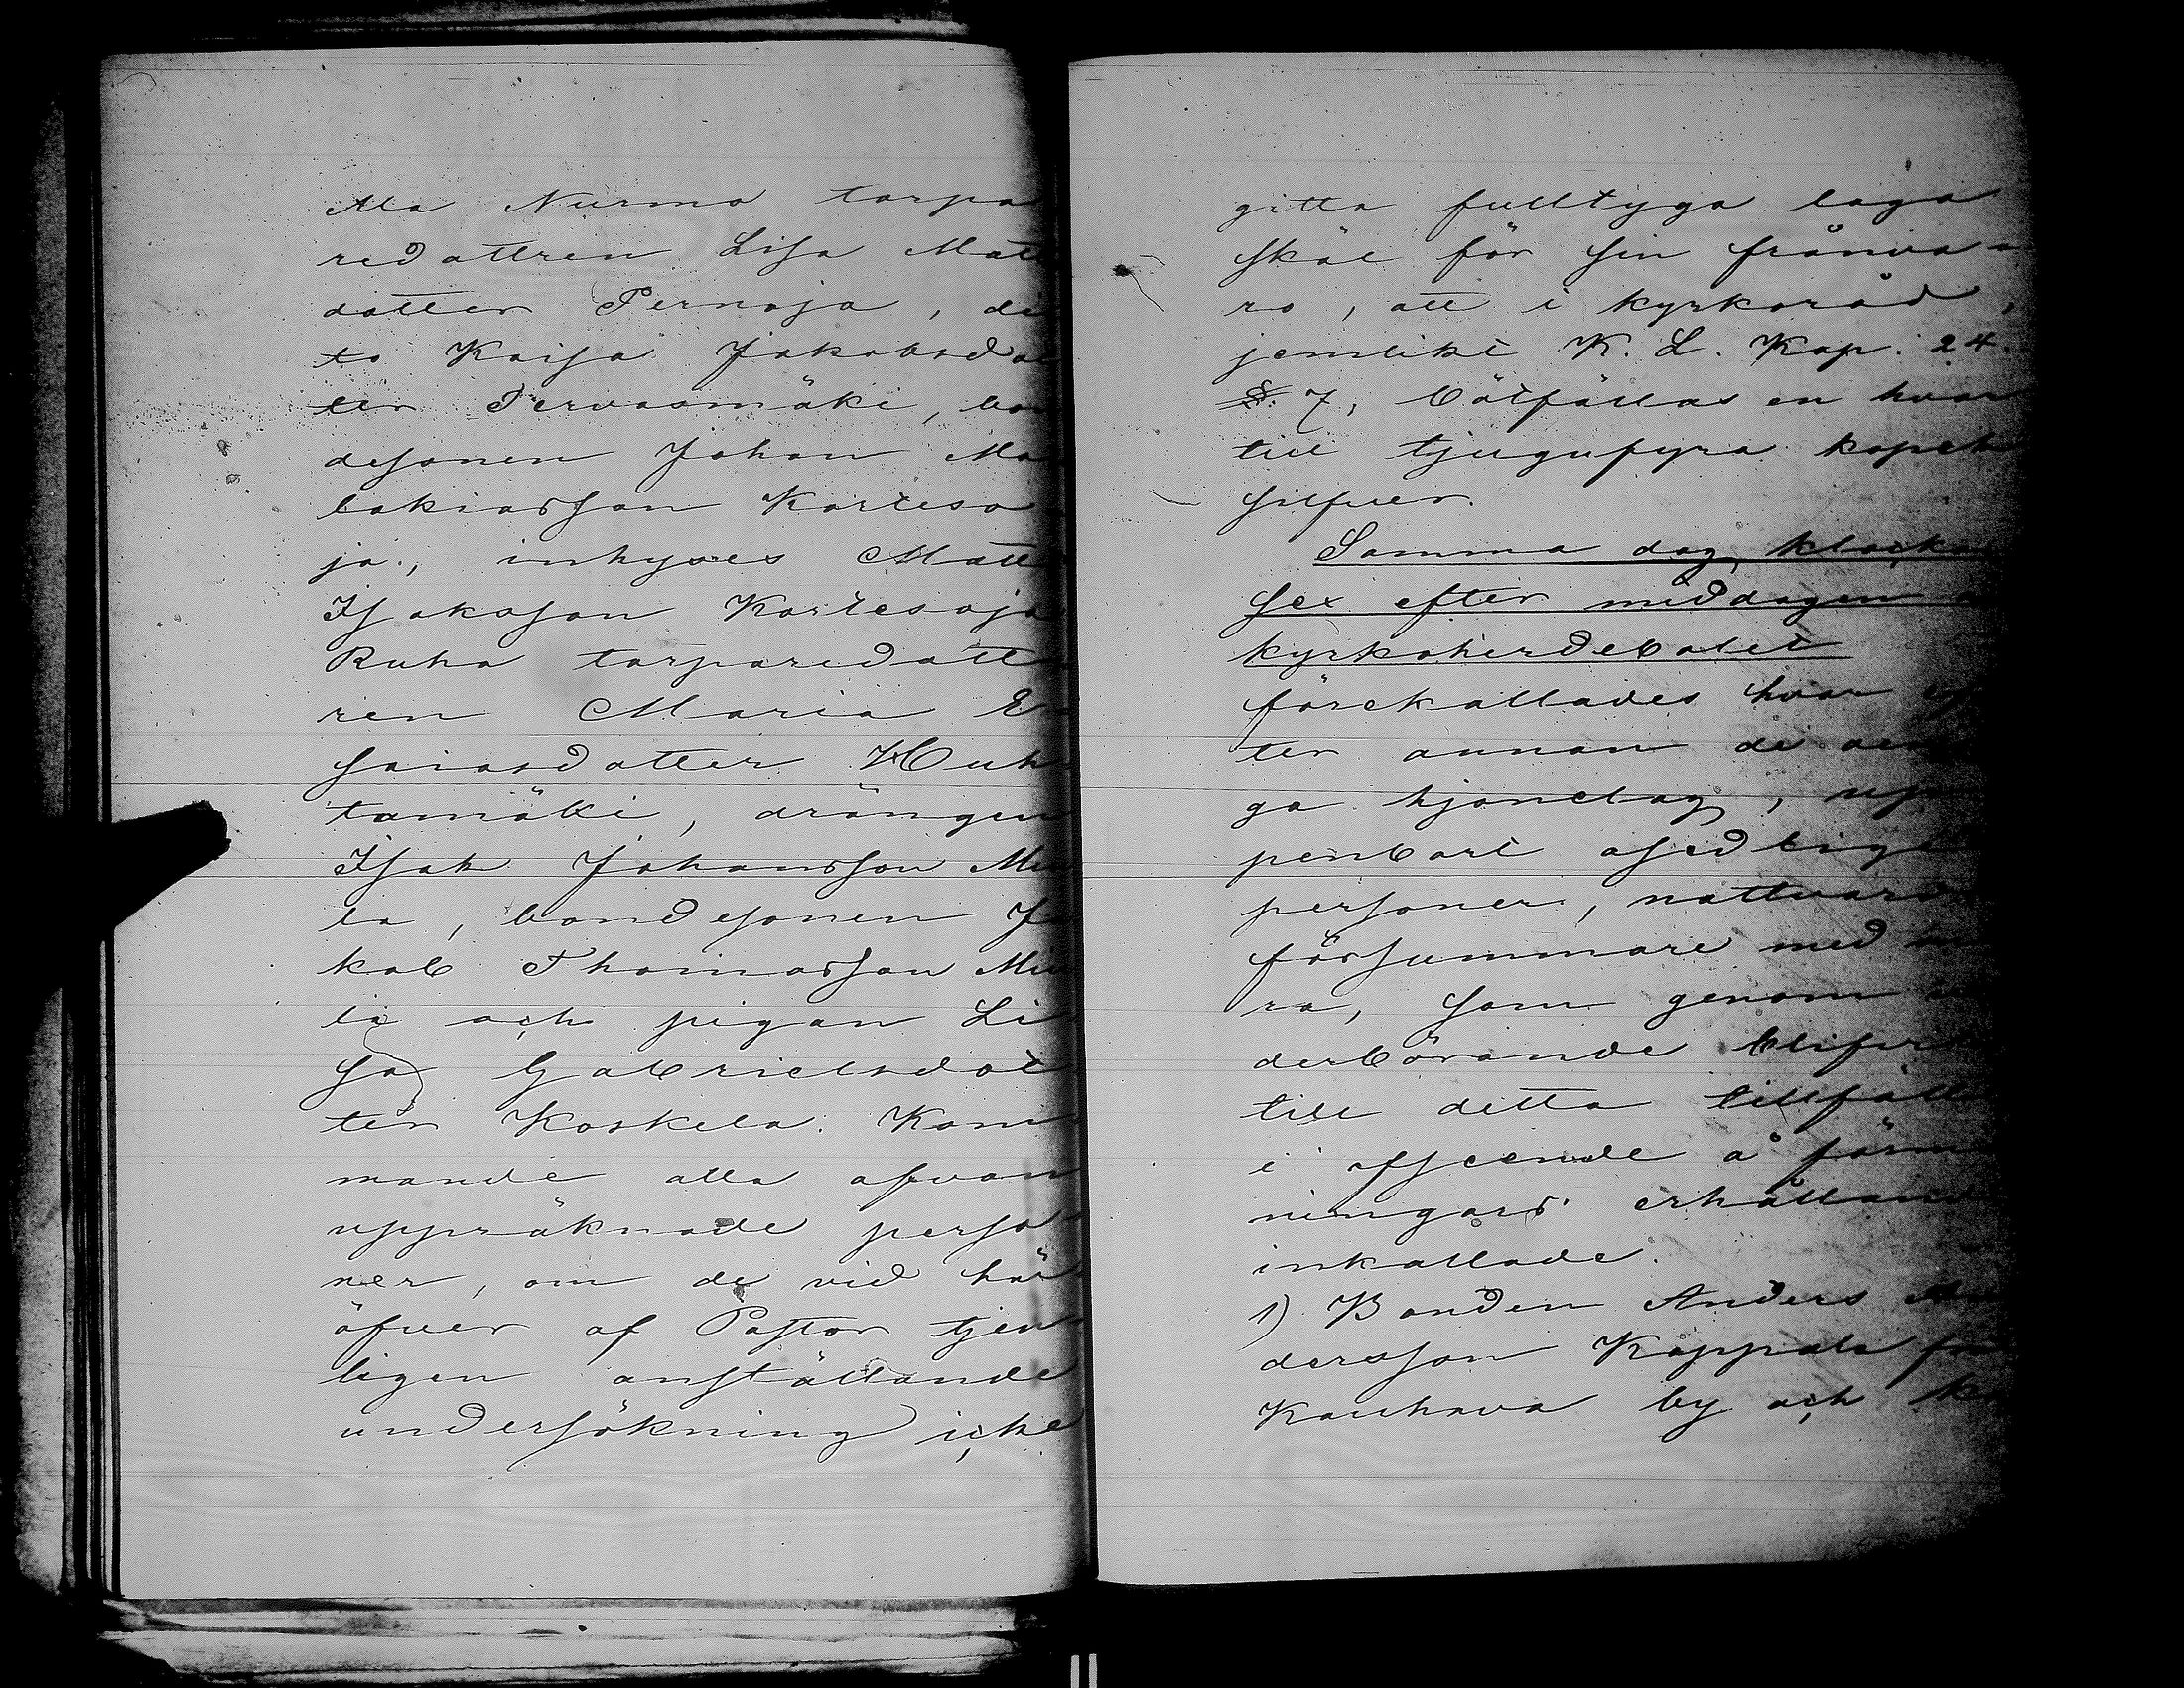 Ala Nurmo torpa
redattren Lisa Matts
dotter Pernaja, di
to Kaisa Jakobsdot
ter Tervasmäki, bon
desonen Johan Ma
lakiasson Korteso
ja, inhyses Matts
Isaksson Kortesoja
Ruha torparedott
ren Maria E
saiasdotter Huh
tamäki, drängen
Isak Johansson
la, bondesonen Ja
kob Thomasson
la och pigan Li
sa Gabrielsdot
ter Koskela. Kom
mande alla ofvan
uppräknade perso
ner, om de vid här
öfver af Pastor tjen
ligen anställande
undersökning icke
gitta fulltyga laga
skäl för sin frånva-
ro, att i kyrkoråd,
jemlikt K. L. Kap. 24.
§. 7, bötfällas en hvar
till tjugufyra kopek
silfver.
Samma dag, klockan
sex efter middagen
kyrkoherdebolet
förekallades hvar ef
ter annan de oeni
ga hjonelag, up
penbart osedliga
personer, nattvards
försummare med
ra, som genom
derbörande blifvit
till detta tillfälle
i afseende å förma
ningars erhållande
inkallade.
1) Bonden Anders An
dersson Kappala från
Kauhava by och